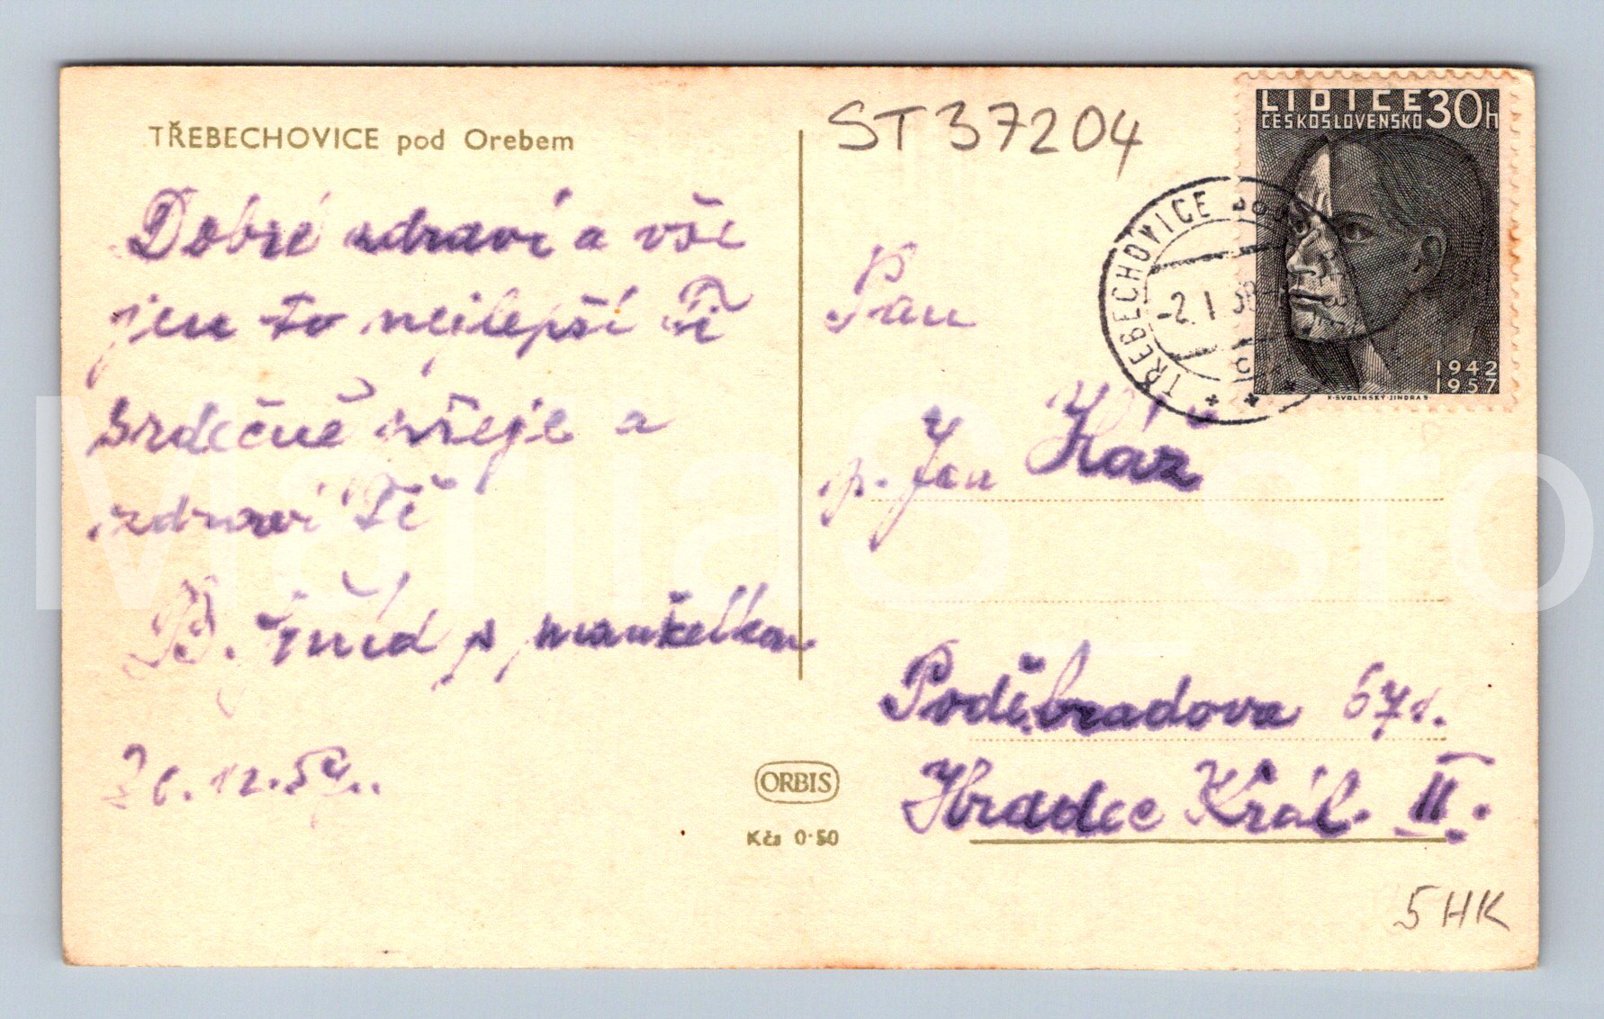 TŘEBECHOVICE pod Orebem
Dobré zdraví a vše
jen to nejlepší Ti
srdečně přeje a
zdraví Tě
B. p manželkou
12.
ORBIS
Kčs 0·50
ST 37204
LIDICE 30h
ČESKOSLOVENSKO
1942
1957
K·SVOLINSKÝ·JINDRA S·
TŘEBECHOVICE POD
-2. I 58
Pan
p. Jan Kaz
Poděbradova 671.
Hradec Král. II.
5 HK